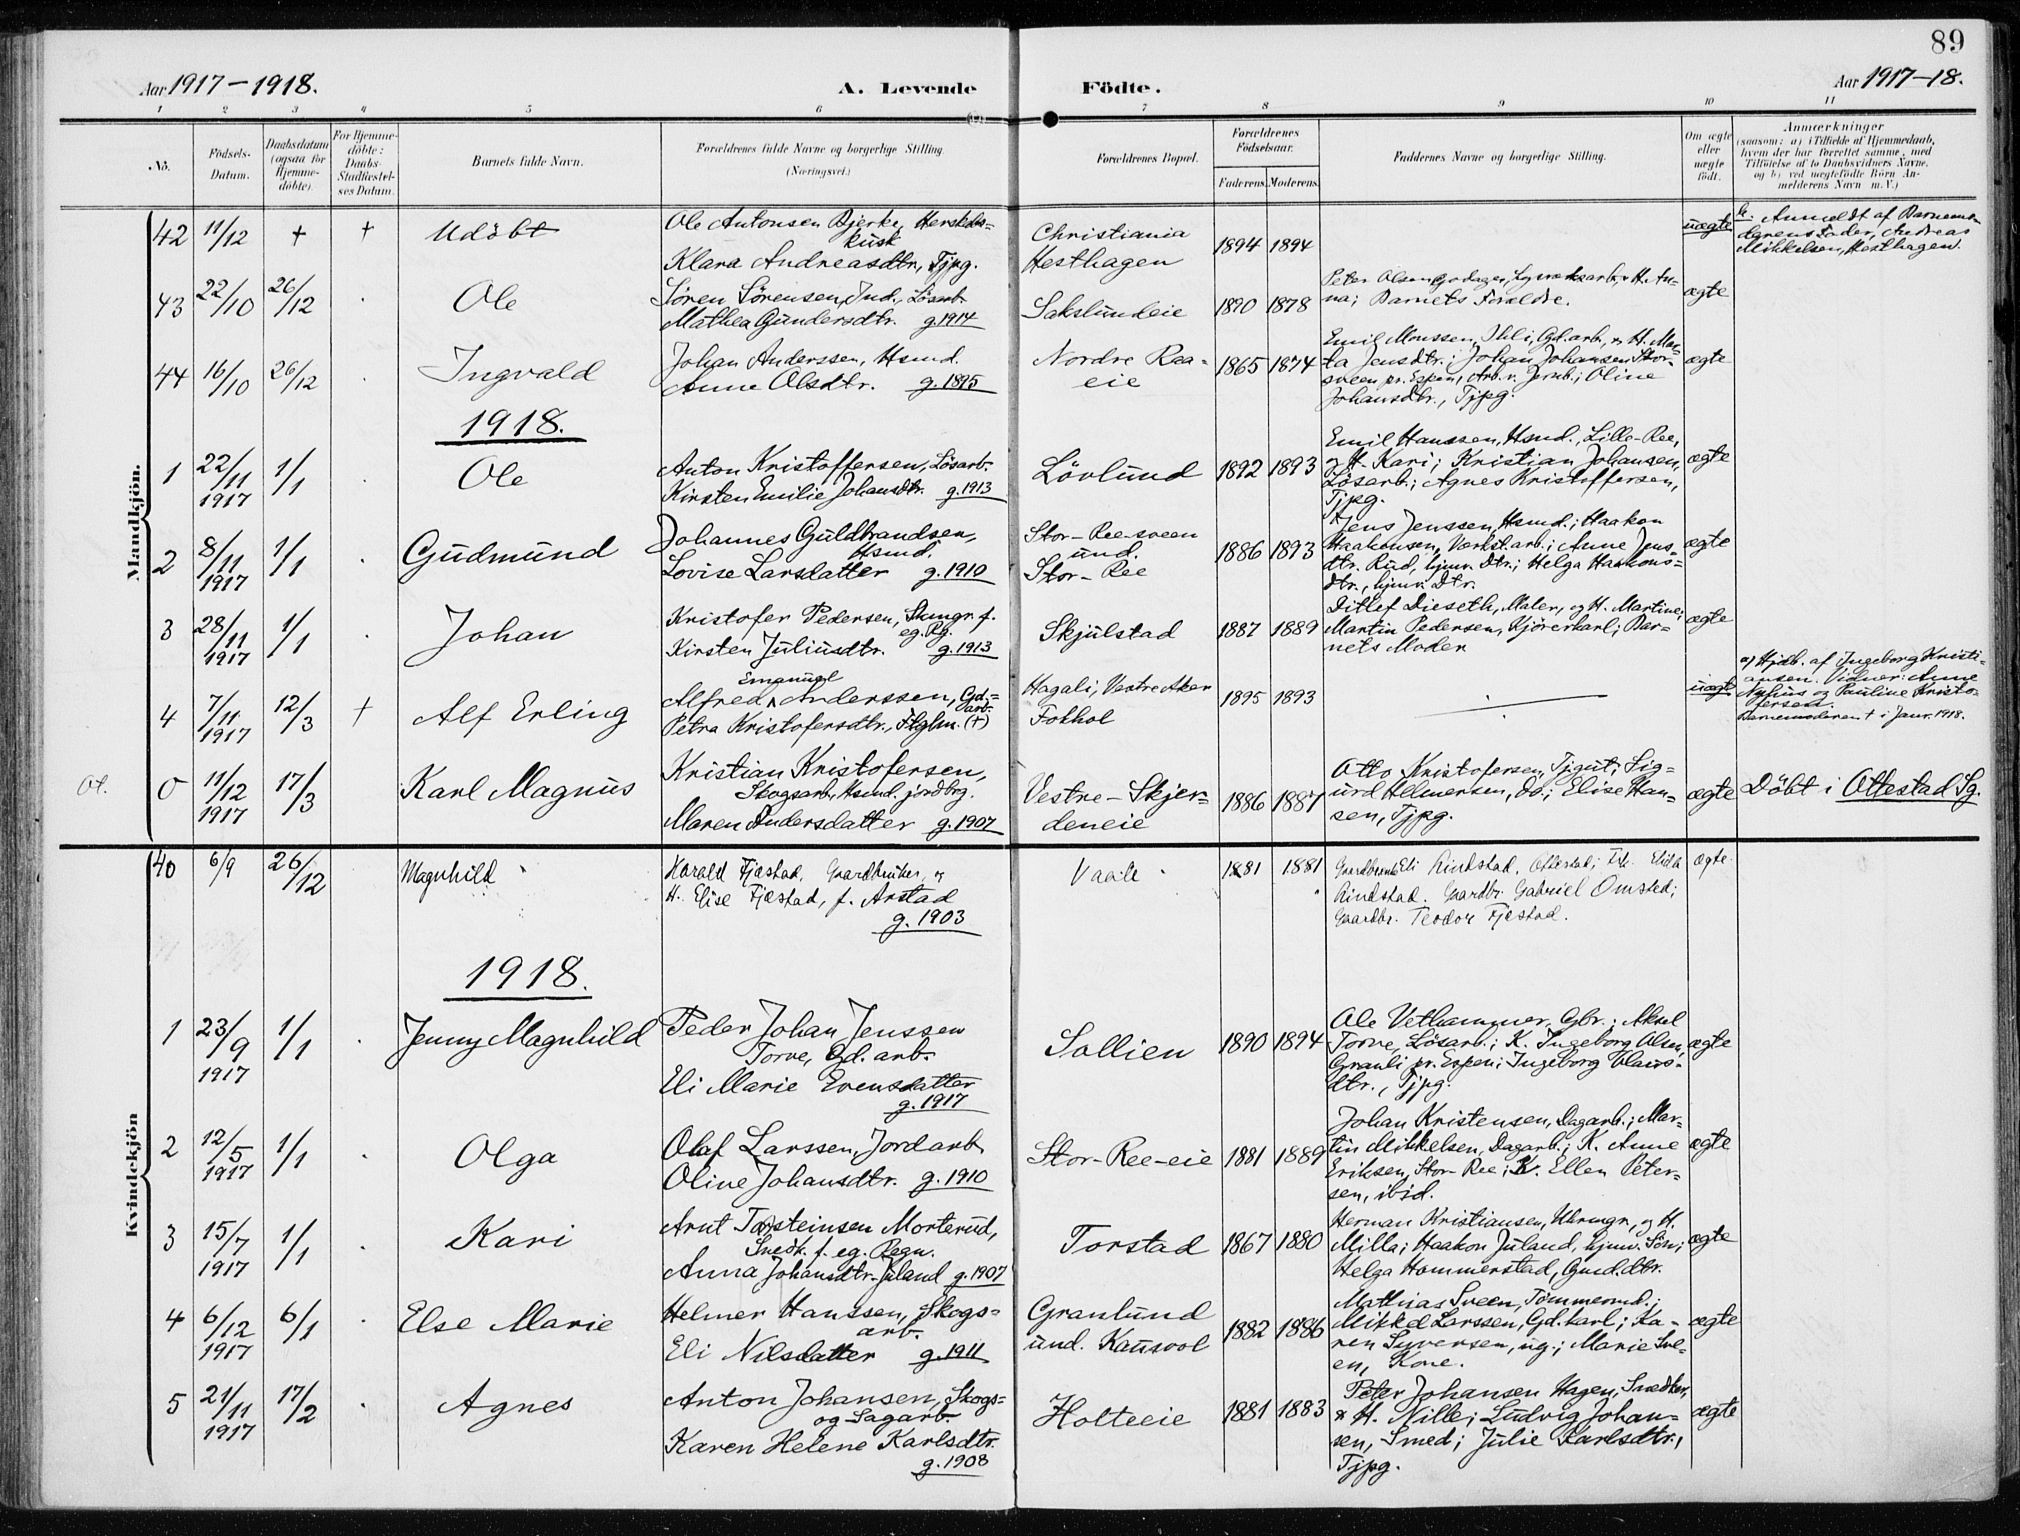 89
Aar 1917–1918.
A. Levende Födte.
Aar 1917–18.
1 2 3 4 5 6 7 8 9 10 11
No.
Födsels-Datum.
Daabsdatum (ogsaa for Hjemme-döbte).
For Hjemme-döbte: Daabs-Stadfæstel-ses Datum.
Barnets fulde Navn.
Forældrenes fulde Navne og borgerlige Stilling.
(Næringsvei.)
Forældrenes Bopæl.
Forældrenes Födselsaar.
Faderens. Moderens.
Faddernes Navne og borgerlige Stilling.
Om ægte eller uægte födt.
Anmærkninger
(saasom: a) i Tilfælde af Hjemmedaab,
hvem der har forrettet samme, med
Tilföielse af to Daabsvidners Navne,
og b) ved uægtefödte Börn An-
melderens Navn m. V.)
Mandkjön.
42 11/12 † † Udöbt Ole Antonsen Bjerke, Herskabs-
kusk
Klara Andreasdtr., Tjpg.
Christiania
Hesthagen
1894 1894 uægte
b. Anmeldt af Barnemo-
derens Fader, Andreas
Mikkelsen, Hesthagen.
43 22/10 26/12 Ole
Sören Sörensen, Ind., Lösarb.
Mathea Gundersdtr. g. 1914
Sakslundeie 1890 1878
Peter Olsen Godager, Sagverksarb., o. H. An-
na; Barnets Forældre.
ægte
44 16/10 26/12 Ingvald
Johan Anderssen, Hsmd.
Anne Olsdtr. g. 1895
Nordre Raa-
eie
1865 1874
Emil Monssen, Ihle, Gd.arb., o. H. Mar-
ta Jensdtr.; Johan Johansen Stor-
sveen pr. Espen, Arb. v. Jernb.; Oline
Johansdtr., Tjpg.
ægte
1918.
1 22/11 1917 1/1 Ole
Anton Kristoffersen, Lösarb.
Kirsten Emilie Johansdtr. g. 1913
Lövlund 1892 1893
Emil Hanssen, Hsmd., Lille-Ree,
og H. Kari; Kristian Johansen,
Lösarb.; Agnes Kristoffersen,
Tjpg.
ægte
2 8/11 1917 1/1 Gudmund
Johannes Guldbrandsen,
Hsmd.
Lovise Larsdatter g. 1910
Stor-Ree-sveen
und.
Stor-Ree
1886 1893
Jens Jenssen, Hsmd.; Haakon
Haakonsen, Verkst.arb.; Anne Jens-
dtr. Rud, hjmv. Dtr.; Helga Haakons-
dtr., hjmv. Dtr.
ægte
3 28/11 1917 1/1 Johan
Kristofer Pedersen, Skmgr. f.
eg. Rg.
Kirsten Juliusdtr. g. 1913
Skjulstad 1887 1889
Ditlef Dieseth, Maler, og H. Martine;
Martin Pedersen, Kjörerkarl; Bar-
nets Moder
ægte
4 7/11 1917 12/3 † Alf Erling
Emanuel
Alfred Anderssen, Gd.-
arb.
Petra Kristofersdtr., Flglm. (†)
Hagali, Vestre Aker
Fokhol
1895 1893 uægte
a) Hjdb. af Ingeborg Kristi-
ansen. Vidner: Anne
Nyhus og Pauline Kristo-
fersen.
Barnemoderen † i Janr. 1918.
Ot. 0 11/12 1917 17/3 Karl Magnus
Kristian Kristofersen,
Skogsarb., Hsmd. jordbrg.
Maren Andersdatter g. 1907
Vestre-Skjer-
deneie
1886 1887
Otto Kristofersen, Tjgut; Sig-
urd Helmersen, do.; Elise Han-
sen, Tjpg.
ægte Döbt i Ottestad Sg.
Kvindekjön
40 6/9 26/12 Magnhild
Harald Fjæstad, Gaardbruker, og
H. Elise Fjæstad, f. Arstad
g. 1903
Vaale 1881 1881
Gaardbruk. Eli Rindstad, Ottestad; Frk. Elida
Rindstad. Gaardbr. Gabriel Omsted;
Gaardbr. Teodor Fjæstad.
ægte
1918.
1 23/9 1917 1/1 Jenny Magnhild
Peder Johan Jenssen
Torve, Gd. arb.
Eli Marie Evensdatter
g. 1917
Sollien 1890 1894
Ole Vethammer, Gbr.; Aksel
Torve, Lösarb.; K. Ingeborg Olsen,
Granli pr. Espen; Ingeborg Olaus-
dtr., Tjpg.
ægte
2 12/5 1917 1/1 Olga
Olaf Larssen, Jordarb.
Oline Johansdtr. g. 1910
Stor-Ree-eie 1881 1889
Johan Kristensen, Dagarb.; Mar-
tin Mikkelsen, Dagarb.; K. Anne
Eriksen, Stor-Ree; K. Ellen Peter-
sen, ibid.
ægte
3 15/7 1917 1/1 Kari
Arnt Torsteinsen Morterud,
Snedk. f. eg. Regn.
Anna Johansdtr. Juland g. 1907
Torstad 1867 1880
Herman Kristiansen, Uhrmgr., og H.
Milla; Haakon Juland, hjmv. Sön;
Helga Hommerstad, Gmd.dtr.
ægte
4 6/12 1917 6/1 Else Marie
Helmer Hanssen, Skogs-
arb.
Eli Nilsdatter g. 1911
Granlund
und. Kausvol
1882 1886
Mathias Sveen, Tömmermd.;
Mikkel Larssen, Gd.karl; Ka-
ren Syversen, ug.; Marie Sve-
en, Kone.
ægte
5 21/11 1917 17/2 Agnes
Anton Johansen, Skogs-
og Sagarb.
Karen Helene Karlsdtr.
g. 1908
Holteeie 1881 1883
Peter Johansen Hagen, Snedker,
o. H. Nille; Ludvig Johan-
sen, Smed; Julie Karlsdtr.,
Tjpg.
ægte